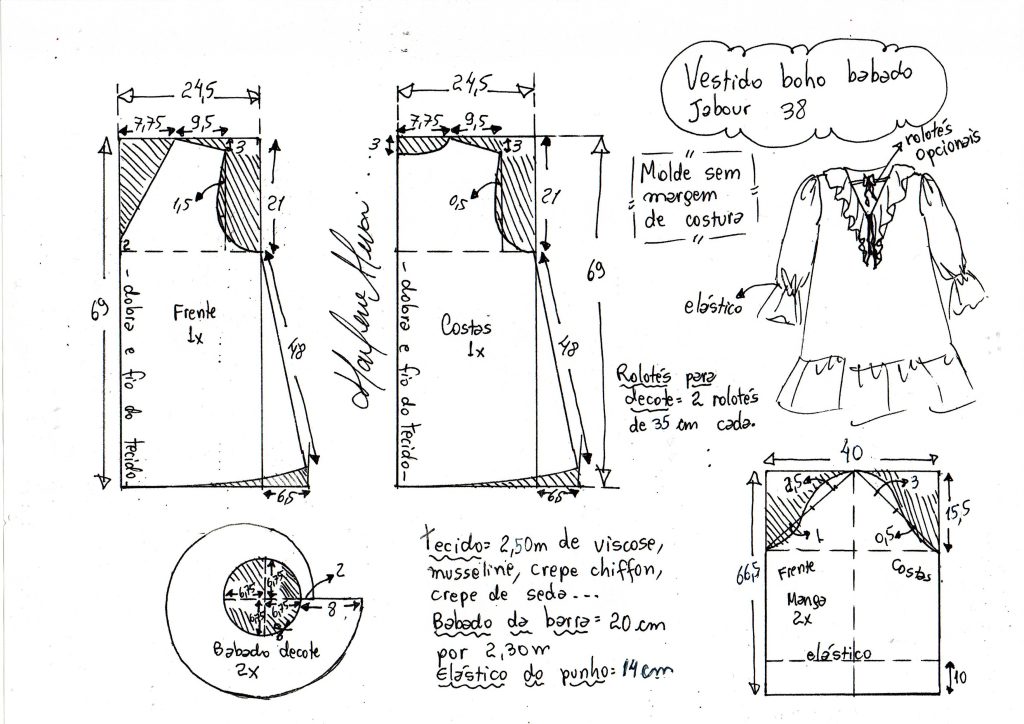 Vestido boho babado
Jabour 38
rolotés
opcionais
Molde sem
margem
de costura
elástico
24,5
7,75
9,5
3
1,5
21
2
69
Frente
1x
48
- dobra e fio do tecido -
6,5
24,5
7,75
9,5
3
3
0,5
21
69
Costas
1x
48
- dobra e fio do tecido -
6,5
Rolotés para
decote = 2 rolotés
de 35 cm cada.
40
2,5
3
15,5
1
0,5
66,5
Frente
Costas
Manga
2x
elástico
10
6,75
6,75
6,75
6,75
2
8
Babado decote
2x
Tecido = 2,50m de viscose,
musseline, crepe chiffon,
crepe de seda...
Babado da barra = 20 cm
por 2,30m
Elástico do punho = 14 cm